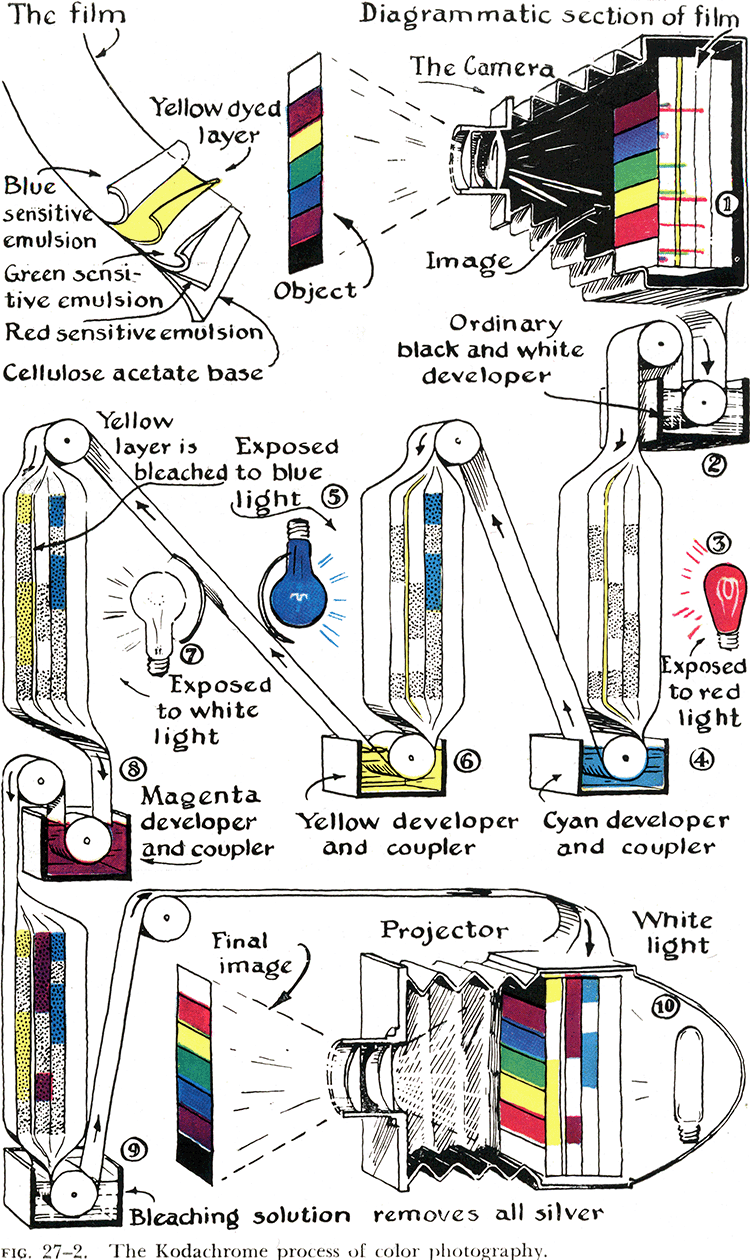 The film
Diagrammatic section of film
The Camera
Yellow dyed
layer
Blue
sensitive
emulsion
Green sensi-
tive emulsion
Red sensitive emulsion
Cellulose acetate base
Object
Image
①
Ordinary
black and white
developer
②
Yellow
layer is
bleached
Exposed
to blue
light
⑤
③
Exposed
to red
light
⑦
Exposed
to white
light
⑧
Magenta
developer
and coupler
⑥
Yellow developer
and coupler
④
Cyan developer
and coupler
Final
image
Projector
White
light
⑩
⑨
Bleaching solution removes all silver
FIG. 27–2. The Kodachrome process of color photography.